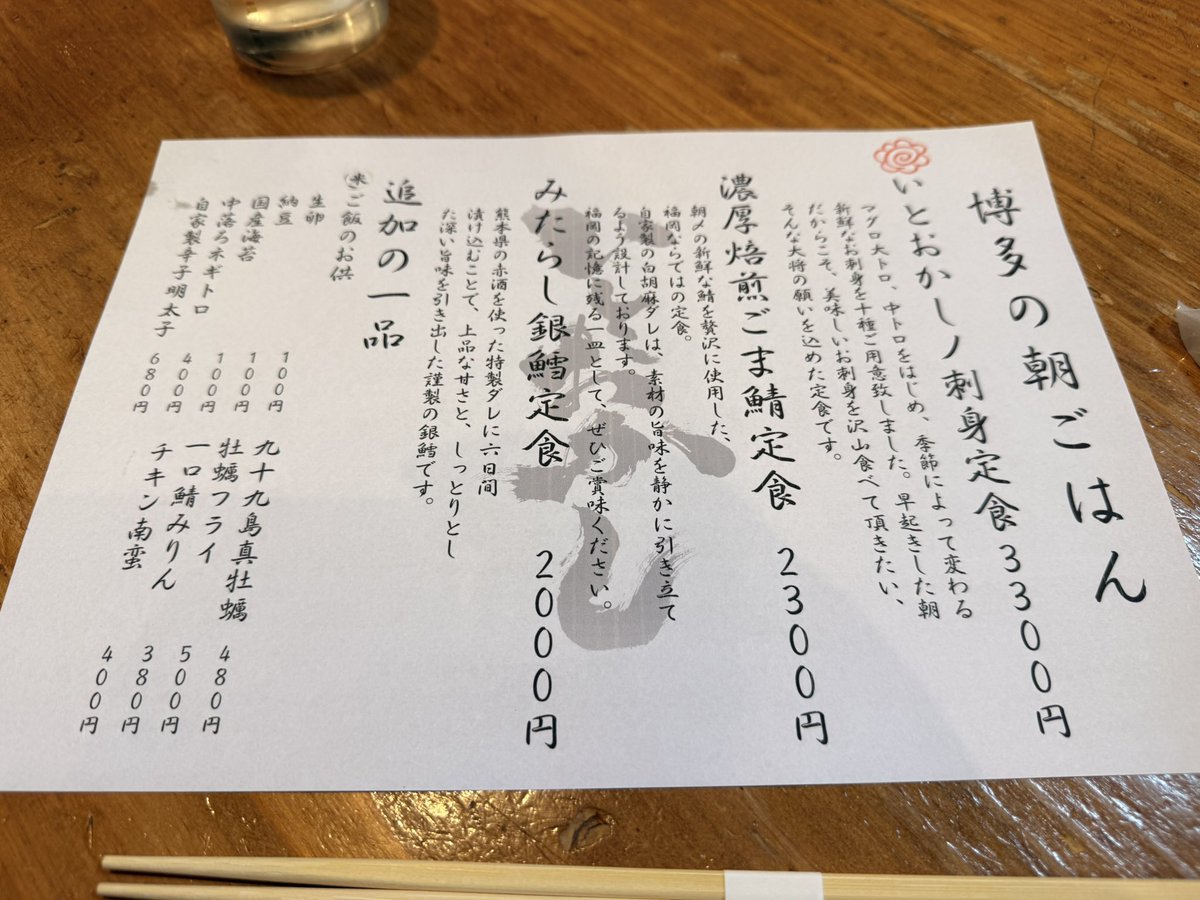 博多の朝ごはん
いとおかしノ刺身定食 3300円
マグロ大トロ、中トロをはじめ、季節によって変わる
新鮮なお刺身を十種ご用意致しました。早起きした朝
だからこそ、美味しいお刺身を沢山食べて頂きたい、
そんな大将の願いを込めた定食です。
濃厚焙煎ごま鯖定食 2300円
朝〆の新鮮な鯖を贅沢に使用した、
福岡ならではの定食。
自家製の白胡麻ダレは、素材の旨味を静かに引き立て
るよう設計しております。
福岡の記憶に残る一皿として、ぜひご賞味ください。
みたらし銀鱈定食 2000円
熊本県の赤酒を使った特製ダレに六日間
漬け込むことで、上品な甘さと、しっとりとし
た深い旨味を引き出した謹製の銀鱈です。
追加の一品
㊍ご飯のお供
生卵 100円
納豆 100円
国産海苔 100円
中落ちネギトロ 400円
自家製辛子明太子 680円
九十九島真牡蠣 480円
牡蠣フライ 500円
一口鯖みりん 380円
チキン南蛮 400円